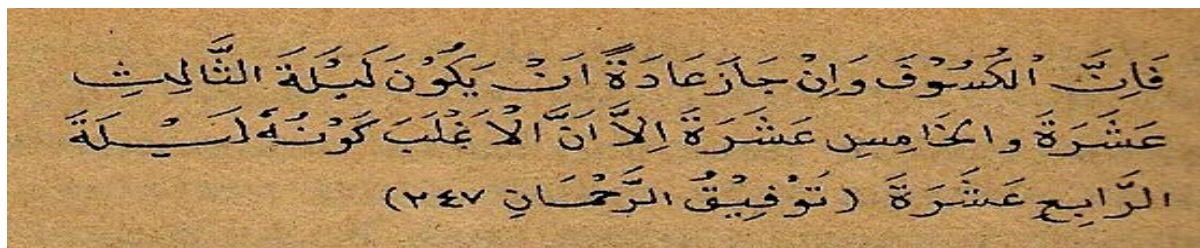 فَاِنَّ الْكُسُوْفَ وَاِنْ جَازَ عَادَةً اَنْ يَكُوْنَ لَيْلَةَ الثَّالِثِ
عَشَرَةَ والخَامِسِ عَشَرَةَ اِلاَّ اَنَّ الْاَغْلَبَ كَوْنُهُ لَيْلَةَ
الرَّابِعِ عَشَرَةَ (تَوْفِيْقُ الرَّحْمَانِ ٣٤٧)